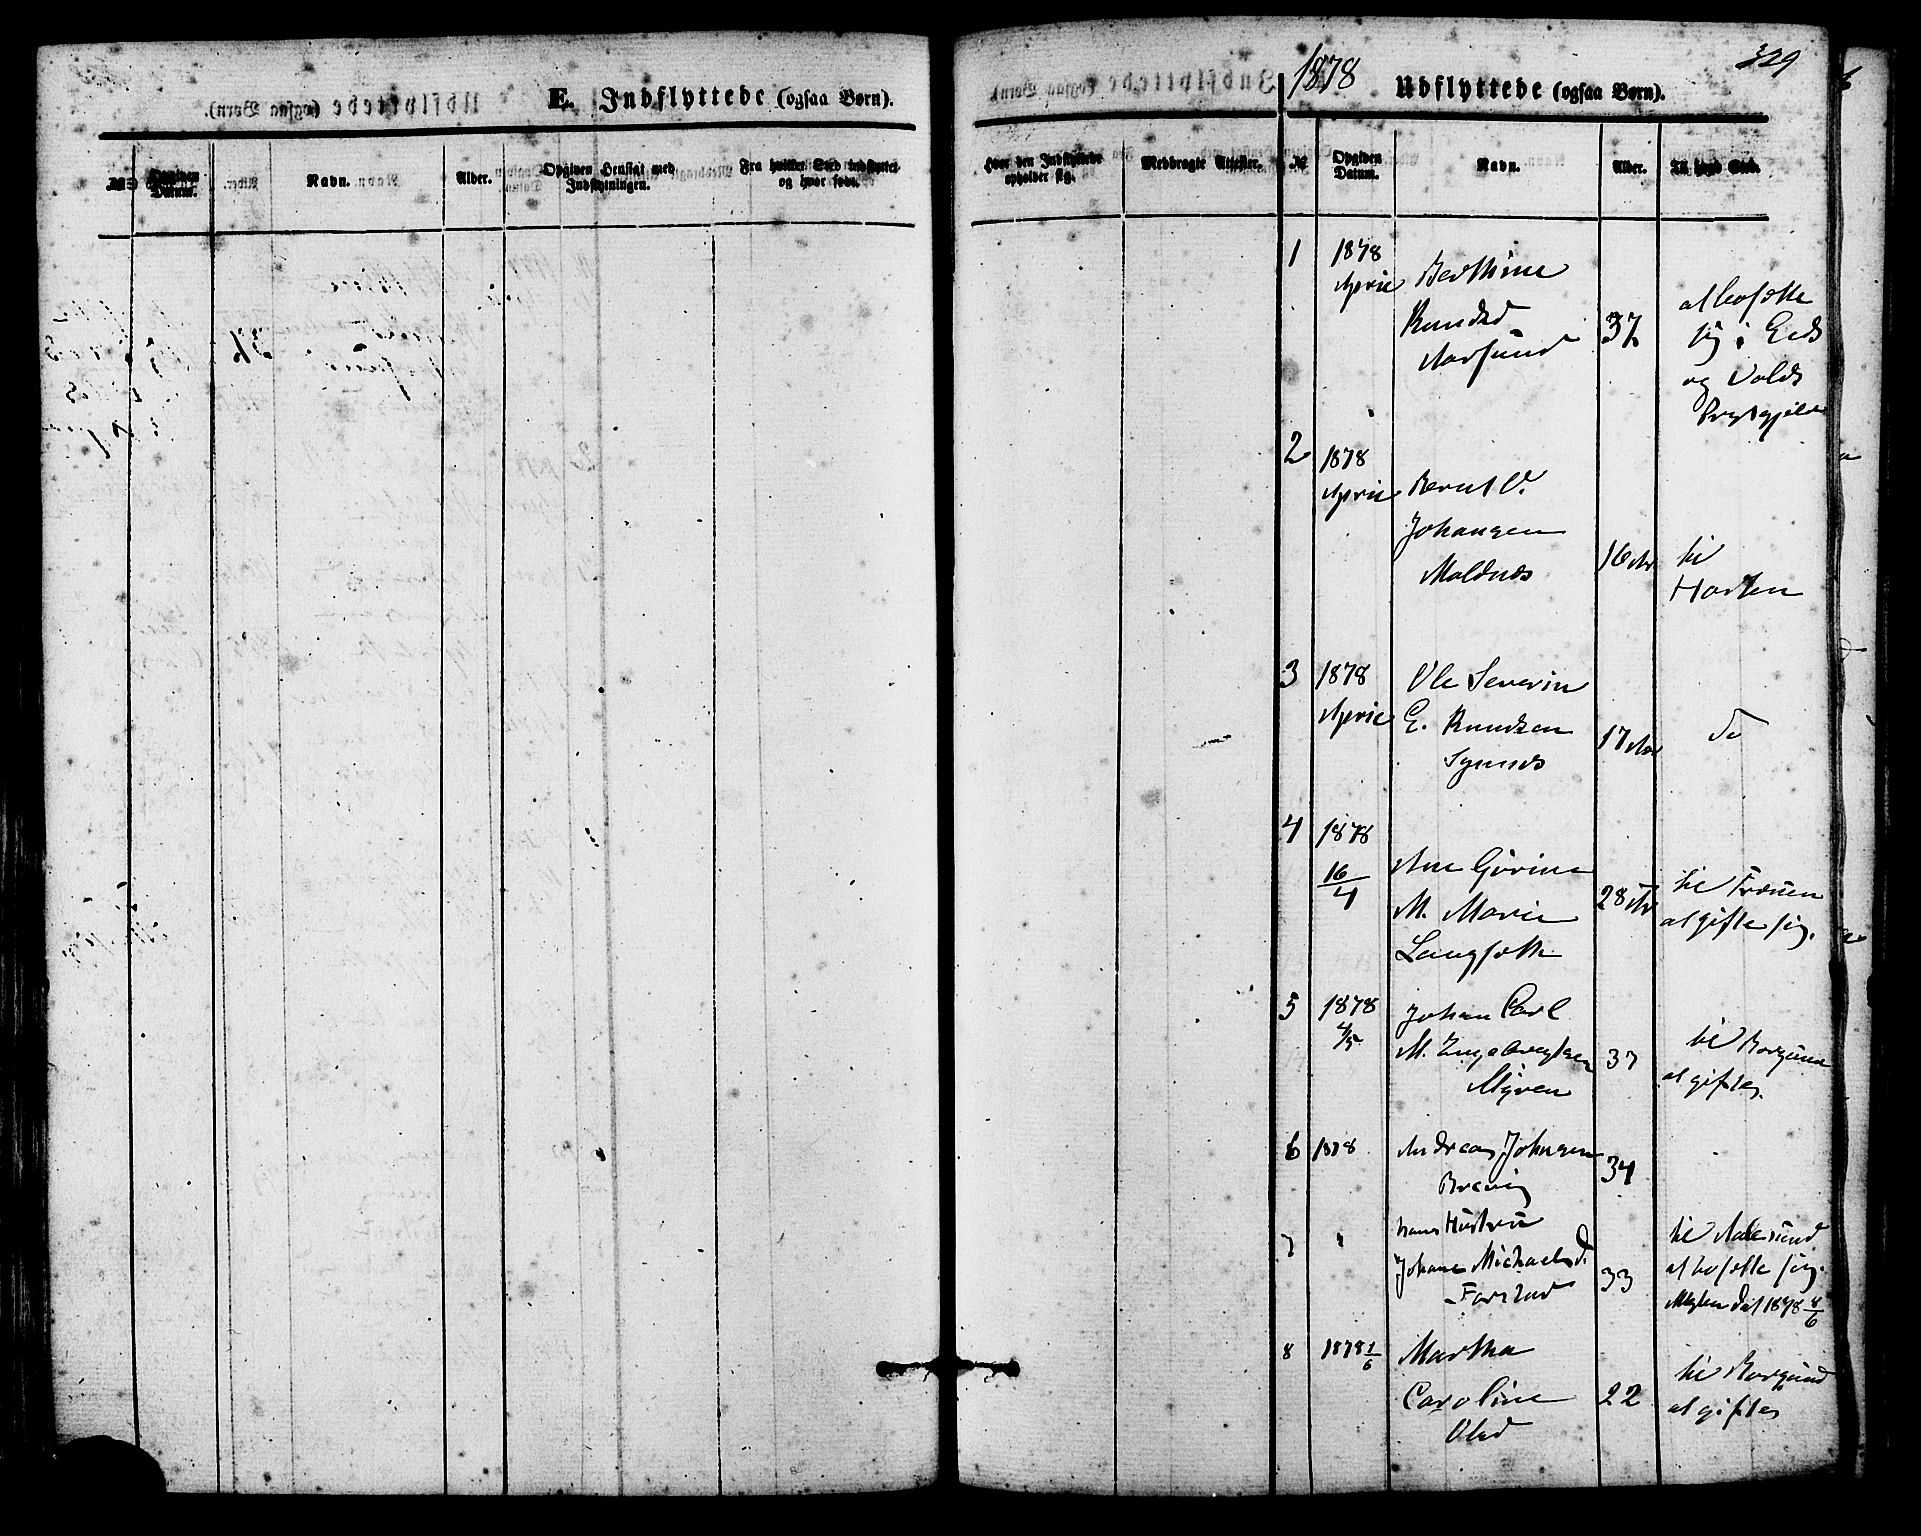 E. Indflyttede (ogsaa Børn).
No.
Opgiven Datum.
Navn.
Alder.
Opgiven Hensigt med Indflytningen.
Fra hvilket Sted indflyttet og hvor født.
Hvor den Indflyttede opholder sig.
Medbragte Attester.
329
1878
Udflyttede (ogsaa Børn).
No.
Opgiven Datum.
Navn.
Alder.
Til hvad Sted.
1
1878
April
Berthine
Knudsd
Aarsund
37
at bosætte
sig i Eids
og Volds
Prestgjeld
2
1878
April
Bernt O.
Johansen
Moldnæs
16 Aar
til
Horten
3
1878
April
Ole Severin
E. Knudsen
Synnes
17 Aar
do
4
1878
16/4
Ane Gurine
M. Marie
Langsæth
28 Aar
til Frænen
at gifte sig.
5
1878
4/5
Johan Carl
M. Engebregtsen
Myren
37
til Borgund
at giftes.
6
1878
Andreas Johnsen
Brevig
34
7
"
hans Hustru
Johane Michaelsd.
Farstad
33
til Aalesund
at bosætte sig.
Meglen dat 1878 8/6
8
1878 1/6
Martha
Caroline
Olsd
22
til Borgund
at giftes